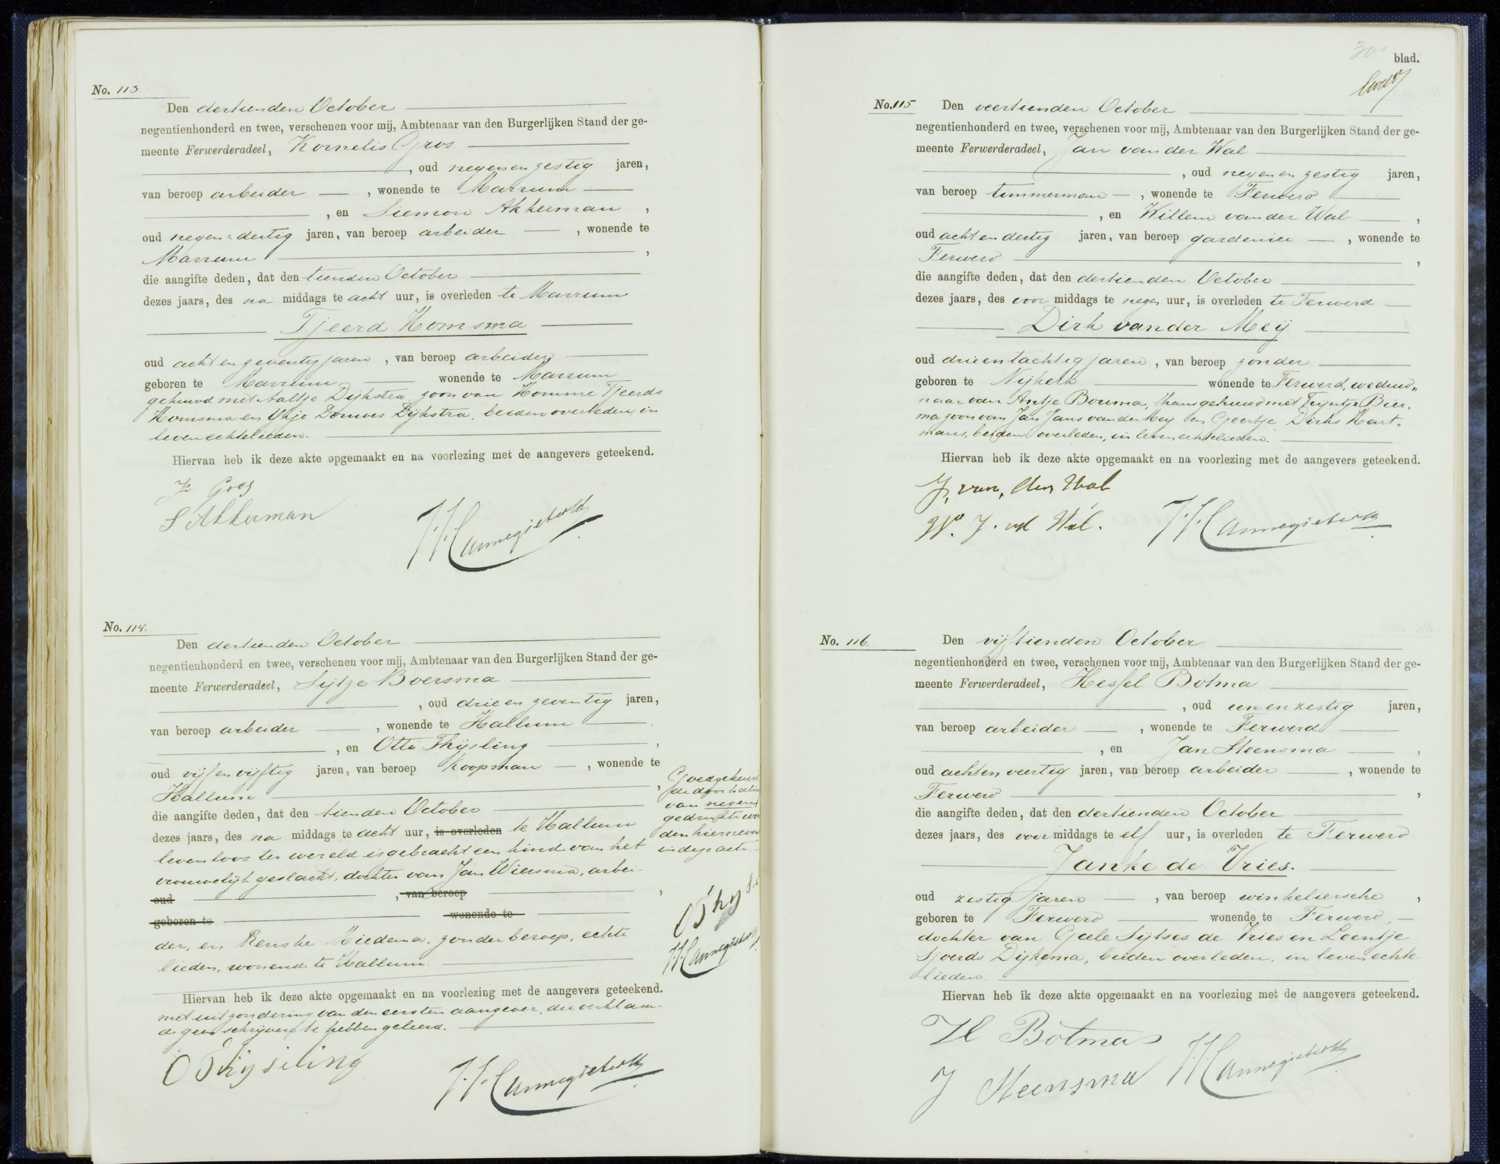 No. 113
Den dertienden October
negentienhonderd en twee, verschenen voor mij, Ambtenaar van den Burgerlijken Stand der ge-
meente Ferwerderadeel, Kornelis Gros
, oud negenenzestig jaren,
van beroep arbeider , wonende te Marrum
, en Siemon Akkerman ,
oud negenendertig jaren, van beroep arbeider , wonende te
Marrum ,
die aangifte deden, dat den tienden October
dezes jaars, des na middags te acht uur, is overleden te Marrum
Tjeerd Homsma
oud achtenzeventig jaren , van beroep arbeider
geboren te Marrum wonende te Marrum
gehuwd met Aaltje Dijkstra, zoon van Homme Tjeerds
Homsma en Douwes Dijkstra, beiden overleden, in
leven echtelieden.
Hiervan heb ik deze akte opgemaakt en na voorlezing met de aangevers geteekend.
K Gros
S Akkerman
J.J. Cannegieter
No. 114.
Den dertienden October
negentienhonderd en twee, verschenen voor mij, Ambtenaar van den Burgerlijken Stand der ge-
meente Ferwerderadeel, Sijtze Boersma
, oud drieenzeventig jaren,
van beroep arbeider , wonende te Hallum
, en Otto Thijsling ,
oud vijfenvijftig jaren, van beroep koopman , wonende te
Hallum ,
die aangifte deden, dat den tienden October
dezes jaars, des na middags te acht uur, is overleden te Hallum
levenloos ter wereld is gebracht een kind van het
vrouwelijk geslacht, dochter van Jan Wiersma, arbei-
oud , van beroep ,
geboren te wonende te
der, en Renske Miedema, zonder beroep, echte
lieden, wonend te Hallum.
Hiervan heb ik deze akte opgemaakt en na voorlezing met de aangevers geteekend.
met uitzondering van den eersten aangever, die verklaar-
de geen schrijven te hebben geleerd.
O Thijsling
J.J. Cannegieter
Goedgekeurd
de doorhalin
van negen
gedrukte woor
den hiernevens
in deze acte.
O Thijs
J.J. Cannegieter
blad.
No. 115
Den veertienden October
negentienhonderd en twee, verschenen voor mij, Ambtenaar van den Burgerlijken Stand der ge-
meente Ferwerderadeel, Jan van der Wal
, oud negenenzestig jaren,
van beroep timmerman , wonende te Ferwerd
, en Willem van der Wal ,
oud achtendertig jaren, van beroep gardenier , wonende te
Ferwerd ,
die aangifte deden, dat den dertienden October
dezes jaars, des voor middags te negen uur, is overleden te Ferwerd
Dirk van der Meij
oud drieentachtig jaren , van beroep zonder
geboren te Nijkerk wonende te Ferwerd, weduw-
naar van Antje Bouma, thans gehuwd met Trijntje Bier-
ma, zoon van Jan Jans van der Meij en Geertje Dirks Hart-
mans, beiden overleden, in leven echtelieden.
Hiervan heb ik deze akte opgemaakt en na voorlezing met de aangevers geteekend.
J. van der Wal
W. J. vd Wal.
J.J. Cannegieter
No. 116
Den vijftienden October
negentienhonderd en twee, verschenen voor mij, Ambtenaar van den Burgerlijken Stand der ge-
meente Ferwerderadeel, Hessel Botma
, oud eenenzestig jaren,
van beroep arbeider , wonende te Ferwerd
, en Jan Heensma ,
oud achtenveertig jaren, van beroep arbeider , wonende te
Ferwerd ,
die aangifte deden, dat den dertienden October
dezes jaars, des voor middags te elf uur, is overleden te Ferwerd
Janke de Vries.
oud zestig jaren , van beroep winkeliersche ,
geboren te Ferwerd wonende te Ferwerd,
dochter van Geele Sijtses de Vries en Leentje
Sjoerds Dijksma, beiden overleden, in leven echte
lieden.
Hiervan heb ik deze akte opgemaakt en na voorlezing met de aangevers geteekend.
H Botma
J Heensma
J.J. Cannegieter